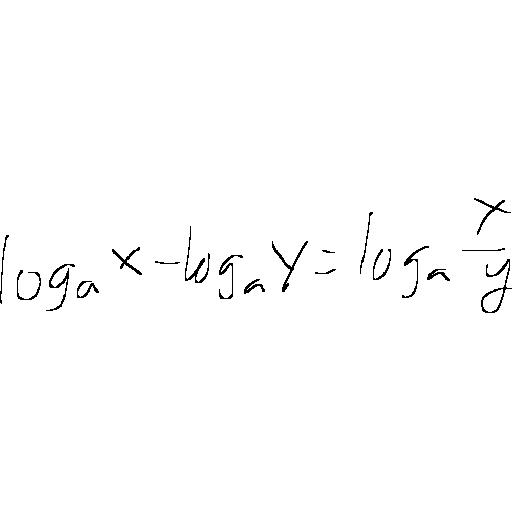 log_a x - log_a y = log_a \frac{x}{y}